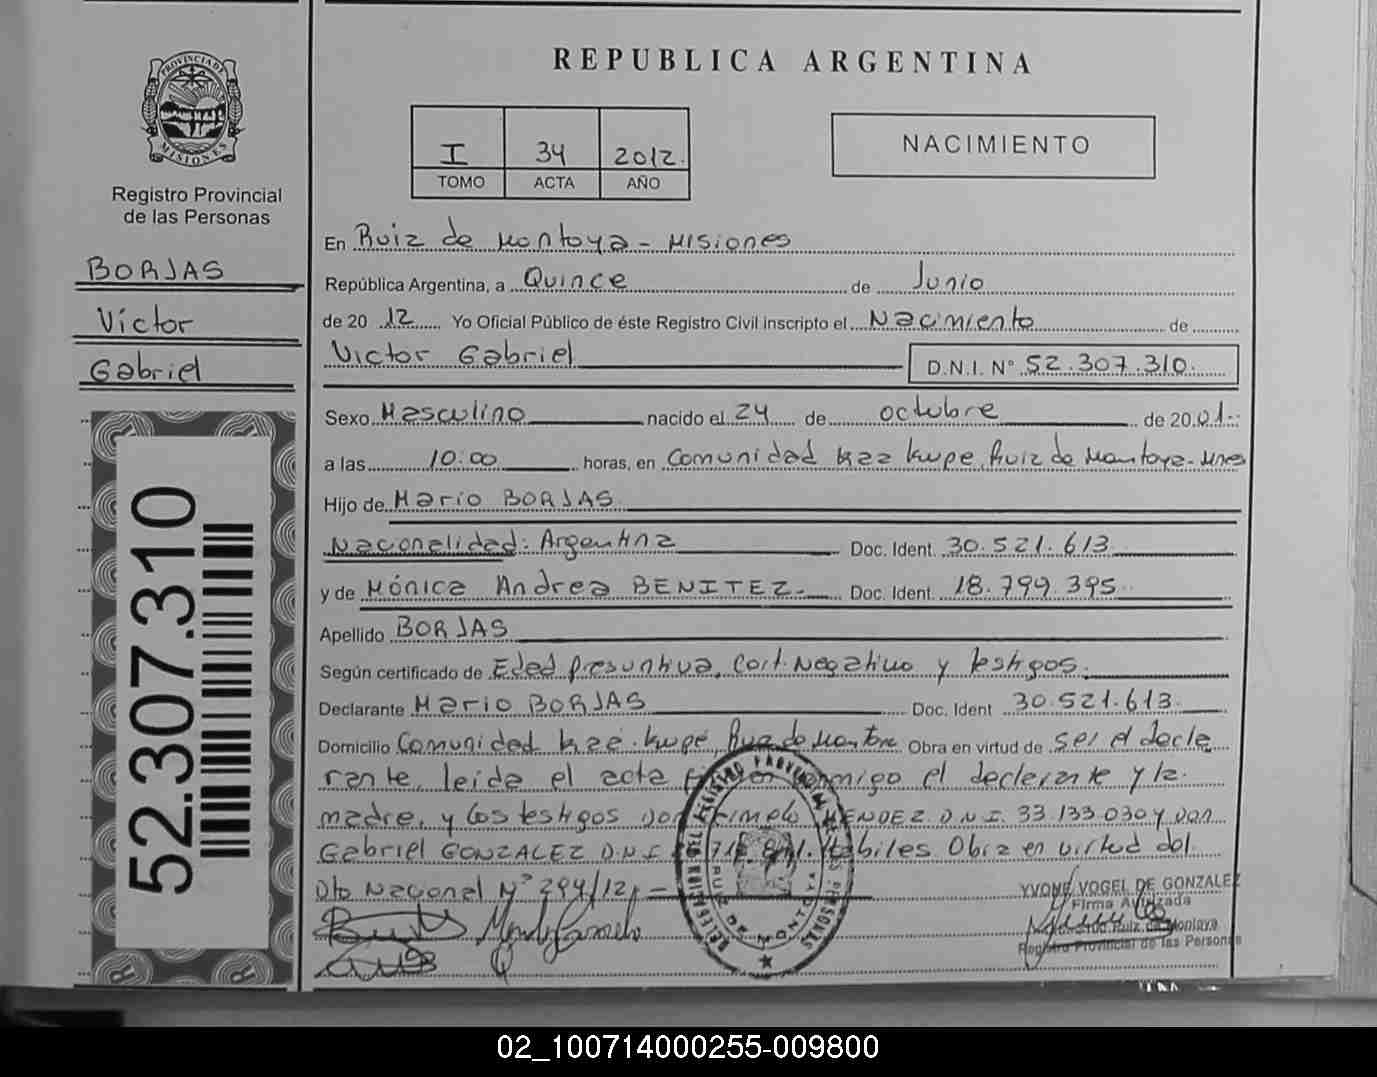 PROVINCIA DE
MISIONES
Registro Provincial
de las Personas
BORJAS
Victor
Gabriel
52.307.310
REPUBLICA ARGENTINA
I 34 2012
TOMO ACTA AÑO
NACIMIENTO
En Ruiz de Montoya - Misiones
República Argentina, a Quince de Junio
de 20 12 Yo Oficial Público de éste Registro Civil inscripto el Nacimiento de
Victor Gabriel D.N.I. N° 52.307.310.
Sexo Masculino nacido el 24 de octubre de 20 01
a las 10:00 horas, en Comunidad Kaa Kupe, Ruiz de Montoya - Mnes
Hijo de Mario BORJAS
Nacionalidad: Argentina Doc. Ident. 30.521.613
y de Mónica Andrea BENITEZ Doc. Ident. 18.799.395
Apellido BORJAS
Según certificado de Edad presuntiva, Cert. Negativo y testigos.
Declarante Mario BORJAS Doc. Ident 30.521.613
Domicilio Comunidad Kaé Kupé, Ruiz de Montoya Obra en virtud de ser el decla
rante, leida el acta conmigo el declarante y la
madre, y los testigos Don MENDEZ D.N.I. 33.133.030 y Don
Gabriel GONZALEZ D.N.I. Habiles. Obra en virtud del
Dto Nacional N° 294/12, -
DELEGACION DEL REGISTRO PROVINCIAL DE LAS PERSONAS
RUIZ DE MONTOYA
YVONE VOGEL DE GONZALEZ
Firma Autorizada
Ruiz de Montoya
Registro Provincial de las Personas
02_100714000255-009800